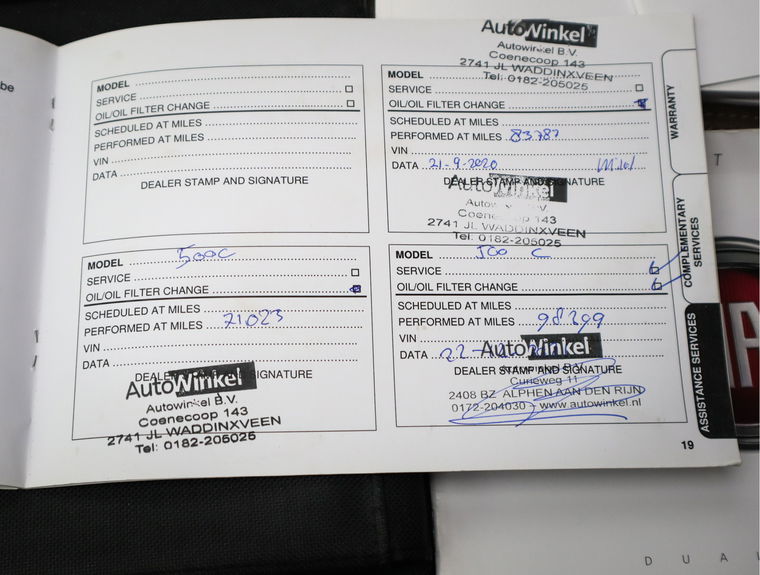 be
MODEL
SERVICE
OIL/OIL FILTER CHANGE
SCHEDULED AT MILES
PERFORMED AT MILES
VIN
DATA
DEALER STAMP AND SIGNATURE
AutoWinkel
Autowinkel B.V.
Coenecoop 143
2741 JL WADDINXVEEN
Tel: 0182-205025
MODEL
SERVICE
OIL/OIL FILTER CHANGE
SCHEDULED AT MILES
PERFORMED AT MILES 83787
VIN
DATA 21-9-2020
DEALER STAMP AND SIGNATURE
AutoWinkel
Coenecoop 143
2741 JL WADDINXVEEN
Tel: 0182-205025
MODEL 500C
SERVICE
OIL/OIL FILTER CHANGE
SCHEDULED AT MILES
PERFORMED AT MILES 71023
VIN
DATA
AutoWinkel
Autowinkel B.V.
Coenecoop 143
2741 JL WADDINXVEEN
Tel: 0182-205025
MODEL 500 C
SERVICE
OIL/OIL FILTER CHANGE
SCHEDULED AT MILES
PERFORMED AT MILES 98299
VIN
DATA 22-
AutoWinkel
DEALER STAMP AND SIGNATURE
Curieweg 11
2408 BZ ALPHEN AAN DEN RIJN
0172-204030 - www.autowinkel.nl
19
WARRANTY
COMPLEMENTARY SERVICES
ASSISTANCE SERVICES
T
D U A L